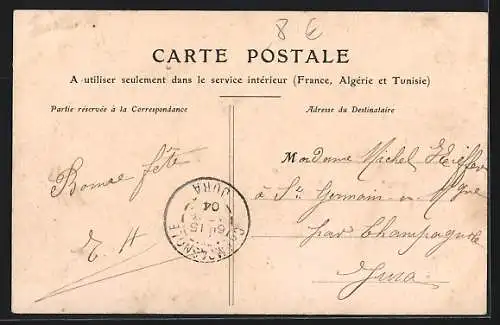 8 €
CARTE POSTALE
A utiliser seulement dans le service intérieur (France, Algérie et Tunisie)
Partie réservée à la Correspondance
Adresse du Destinataire
Bonne fête
Madame Michel
à St Germain en Mgne
par Champagnole
Jura
JURA
15
04